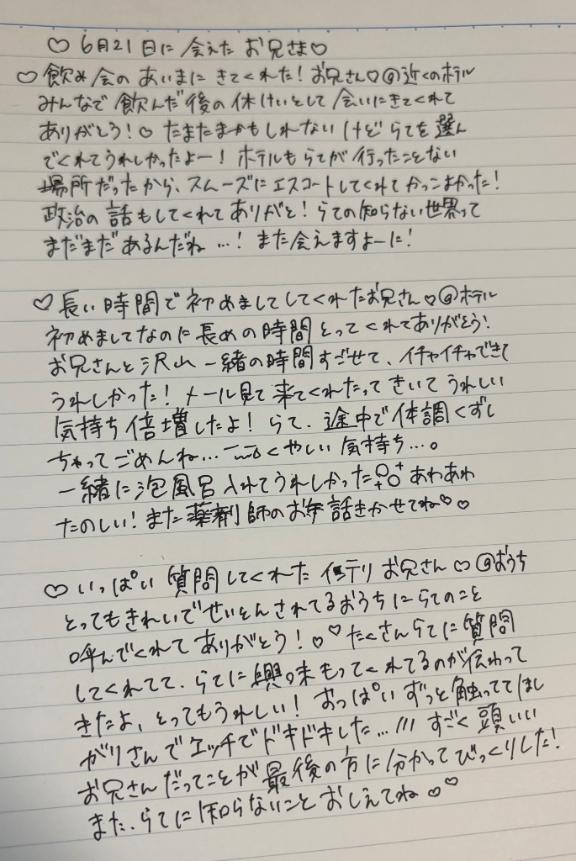 ♡ 6月21日に 会えた お兄さま♡
♡ 飲み会の あいまに きてくれた！お兄さん♡@近くのホテル
みんなで 飲んだ後の休けいとして 会いにきてくれて
ありがとう！♡ たまたまかもしれない けど らてを 選ん
でくれてうれしかったよー！ ホテルも らてが 行ったことない
場所だったから、スムーズに エスコートしてくれて かっこよかった！
政治の 話もしてくれて ありがと！ らての知らない世界って
まだまだ あるんだね …！ また会えますよーに！
♡ 長い時間で 初めまして してくれたお兄さん♡@ホテル
初めましてなのに 長めの時間 とってくれて ありがとう！
お兄さんと 沢山 一緒の時間 すごせて、イチャイチャできて
うれしかった！ メール見て 来てくれたって きいて うれしい
気持ち 倍増したよ！ らて、途中で 体調くずし
ちゃって ごめんね… くやしい 気持ち…。
一緒に 泡風呂 入れて うれしかった あわあわ
たのしい！ また 薬剤師の お話 きかせてね♡♡
♡ いっぱい 質問してくれた インテリ お兄さん ♡ @おうち
とってもきれいで せいとんされてる おうちに らてのこと
呼んでくれて ありがとう！♡♡ たくさん らてに 質問
してくれてて、らてに 興味 もってくれてるのが 伝わって
きたよ、とってもうれしい！ おっぱい ずっと 触っててほし
がりさんで エッチで ドキドキした…/// すごく 頭いい
お兄さん だってことが 最後の方に 分かって びっくりした！
また、らてに 知らないこと おしえてね ♡♡